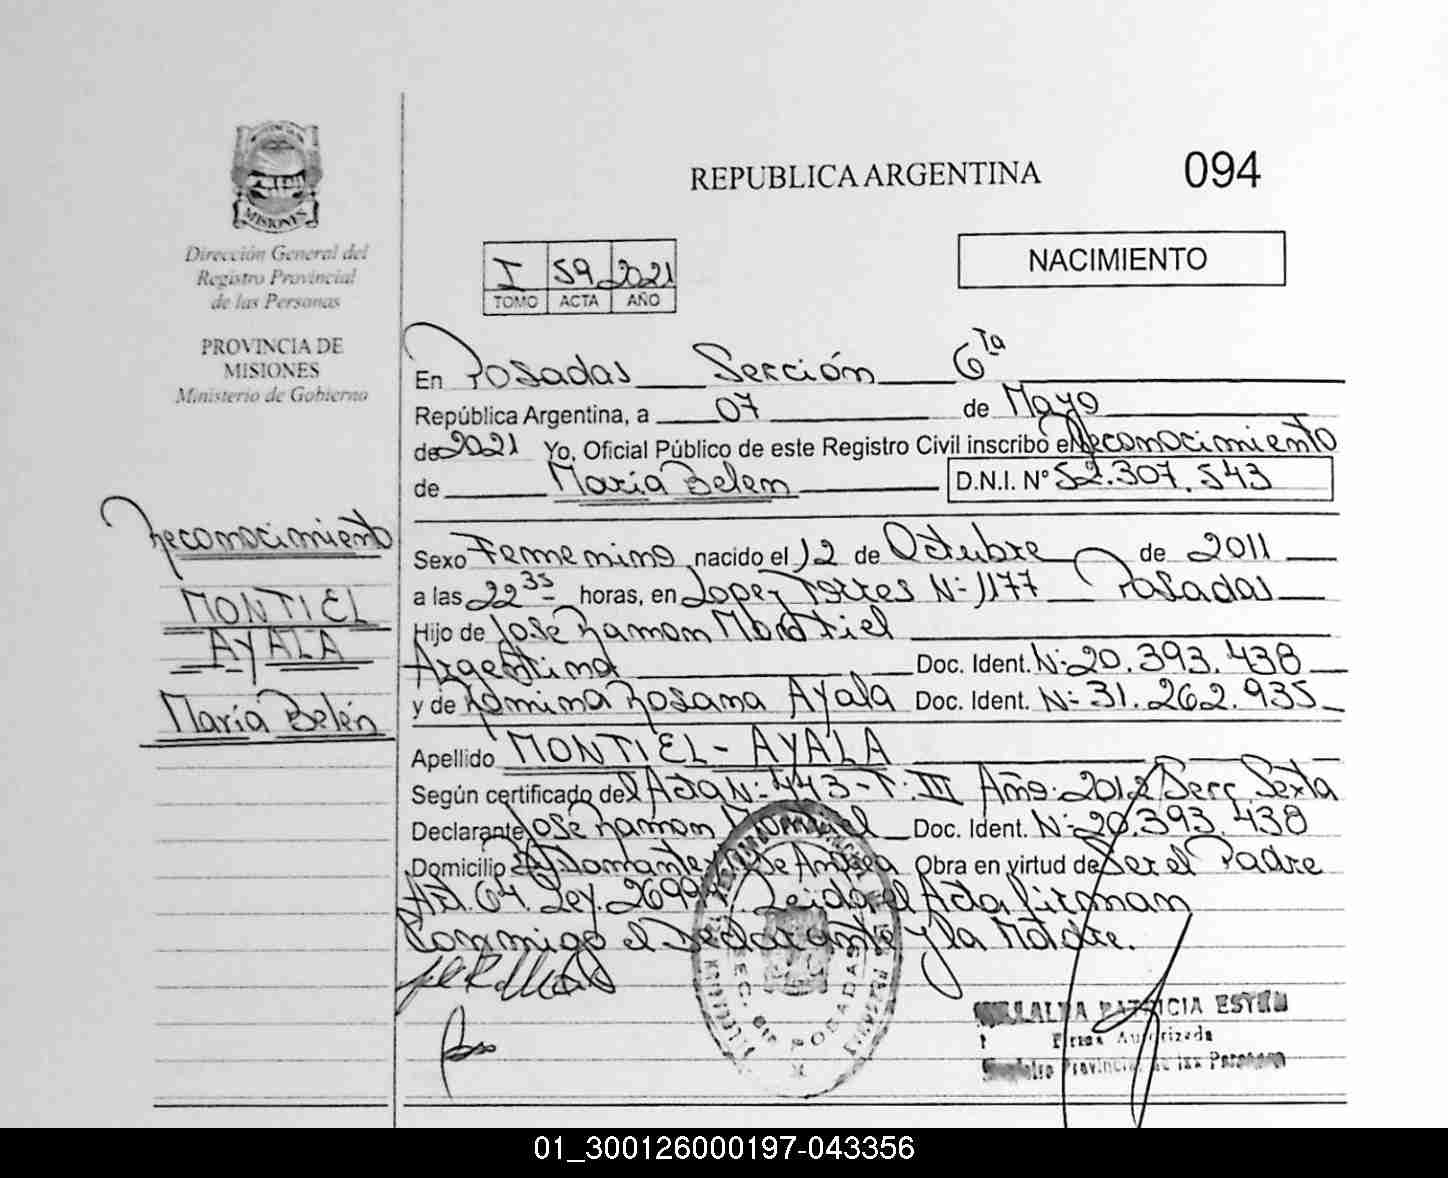 REPUBLICA ARGENTINA
094
MISIONES
Dirección General del
Registro Provincial
de las Personas
PROVINCIA DE
MISIONES
Ministerio de Gobierno
NACIMIENTO
I 59 2021
TOMO ACTA AÑO
En Posadas Sección 6ta
República Argentina, a 07 de Mayo
de 2021 Yo, Oficial Público de este Registro Civil inscribo el Reconocimiento
de María Belem D.N.I. Nº 52.307.543
Reconocimiento
MONTIEL
AYALA
María Belén
Sexo Femenino nacido el 12 de Octubre de 2011
a las 22 35 horas, en Lopez Torres Nº 1177 Posadas
Hijo de José Ramon Montiel
Argentina Doc. Ident. Nº 20.393.438
y de Romina Rosana Ayala Doc. Ident. Nº 31.262.935
Apellido MONTIEL - AYALA
Según certificado del Acta Nº 443 - T: III Año: 2012 Secc. Sexta
Declarante José Ramon Montiel Doc. Ident. Nº 20.393.438
Domicilio De Andrea Obra en virtud de Ser el Padre
Art. 64. Ley. Leida el Acta firman
Conmigo el Declarante y la Madre.
SEC. 6ta POSADAS
PATRICIA ESTER
Firma Autorizada
Registro Provincial de las Personas
01_300126000197-043356